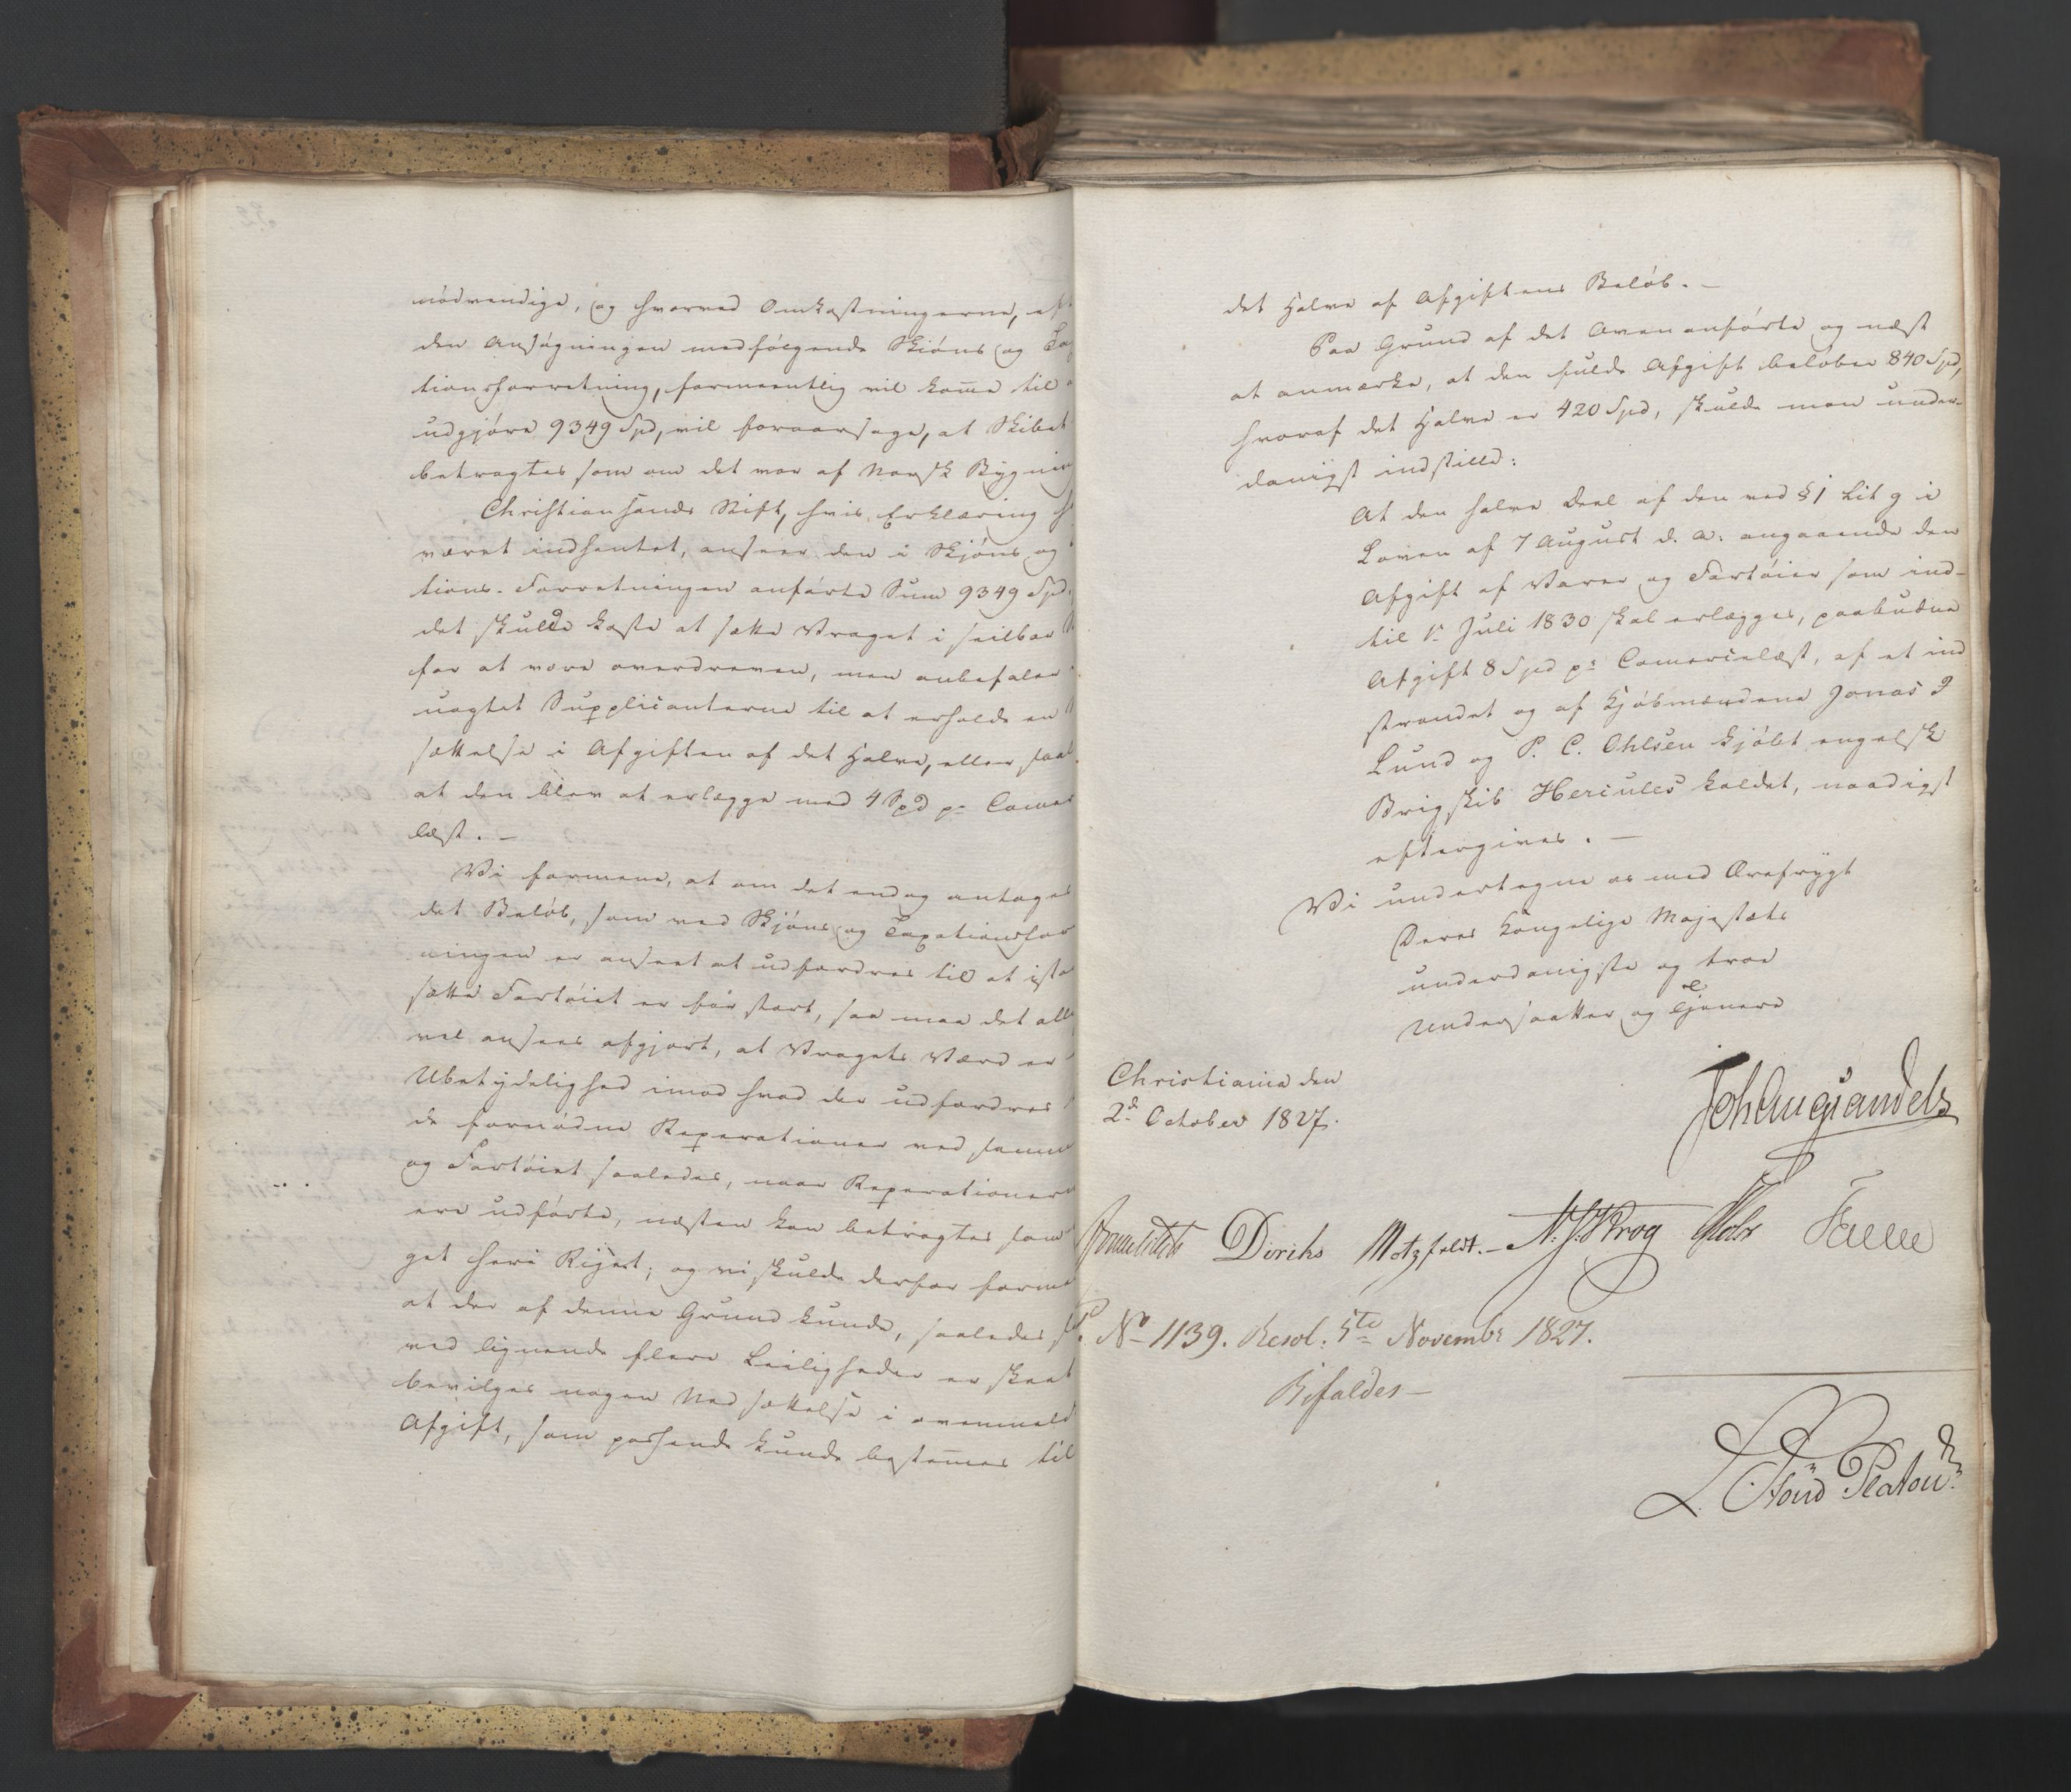 nödvendige, og hvorved Omkostningerne, eft
den Ansøgningen medfølgende Skiöns og Tax
tionsforretning, formeentlig vil kom̅e til a
udgjöre 9349 Spd, vil foraarsage, at Skibet
betragtes som om det var af Norsk Bygnin
Christiansands Stift, hvis Erklæring h
været indhentet, anseer den i Skjöns og
tions-Forretningen anförte Sum 9349 Spd.
det skulde koste at sætte Vraget i seilbar
for at være overdreven, men anbefaler
uagtet Supplicanterne til at erholde en
sættelse i Afgiften af det Halve, eller saal
at den blev at erlægge med 4 Spd pr Comer
læst. —
Vi formene, at om det endog antages
det Beløb, som ved Skjöns og Taxationsfor
ningen er anseet at udfordres til at ista
sætte Fartöiet er for stort, saa maa det alli
vel ansees afgjort, at Vragets Værd er
Ubetydelighed imod hvad der udfordres
de fornödne Reperationer ved samme
og Fartöiet saaledes, naar Reperationern
ere udförte, næsten kan betragtes som
get heri Riget; og vi skulde derfor forme
at der af denne Grund kunde, saaledes s
ved lignende flere Leiligheder er skeet
bevilges nogen Nedsættelse i ovenmeld
Afgift, som passende kunde bestem̅es til
det Halve af Afgiftens Beløb. —
Paa Grund af det Ovenanförte og næst
at anmærke, at den fulde Afgift beløber 840 Spd,
hvoraf det Halve er 420 Spd, skulde man under-
danigst indstille:
At den halve Deel af den ved § 1 Lit g i
Loven af 7 August d. A. angaaende den
Afgift af Varer og Fartöier som ind-
til 1ste Juli 1830 skal erlægges, paabudne
Afgift 8 Spd pr Comercelæst, af et ind
strandet og af Kjöbmændene Jonas J
Lund og P. C. Ohlsen kjöbt engelsk
Brigskib Hercules kaldet, naadigst
eftergives. —
Vi undertegne os med Ærefrygt
Deres Kongelige Majestæts
underdanigste og troe
Undersaatter og Tjenere
Christiania den
2d October 1827.
Joh Aug Sandels
Diriks Motzfeldt. — N. J. Krog Holst Fasting
No 1139. Resol: 5te Novembr 1827.
Bifaldes —
L. Stoud Platou